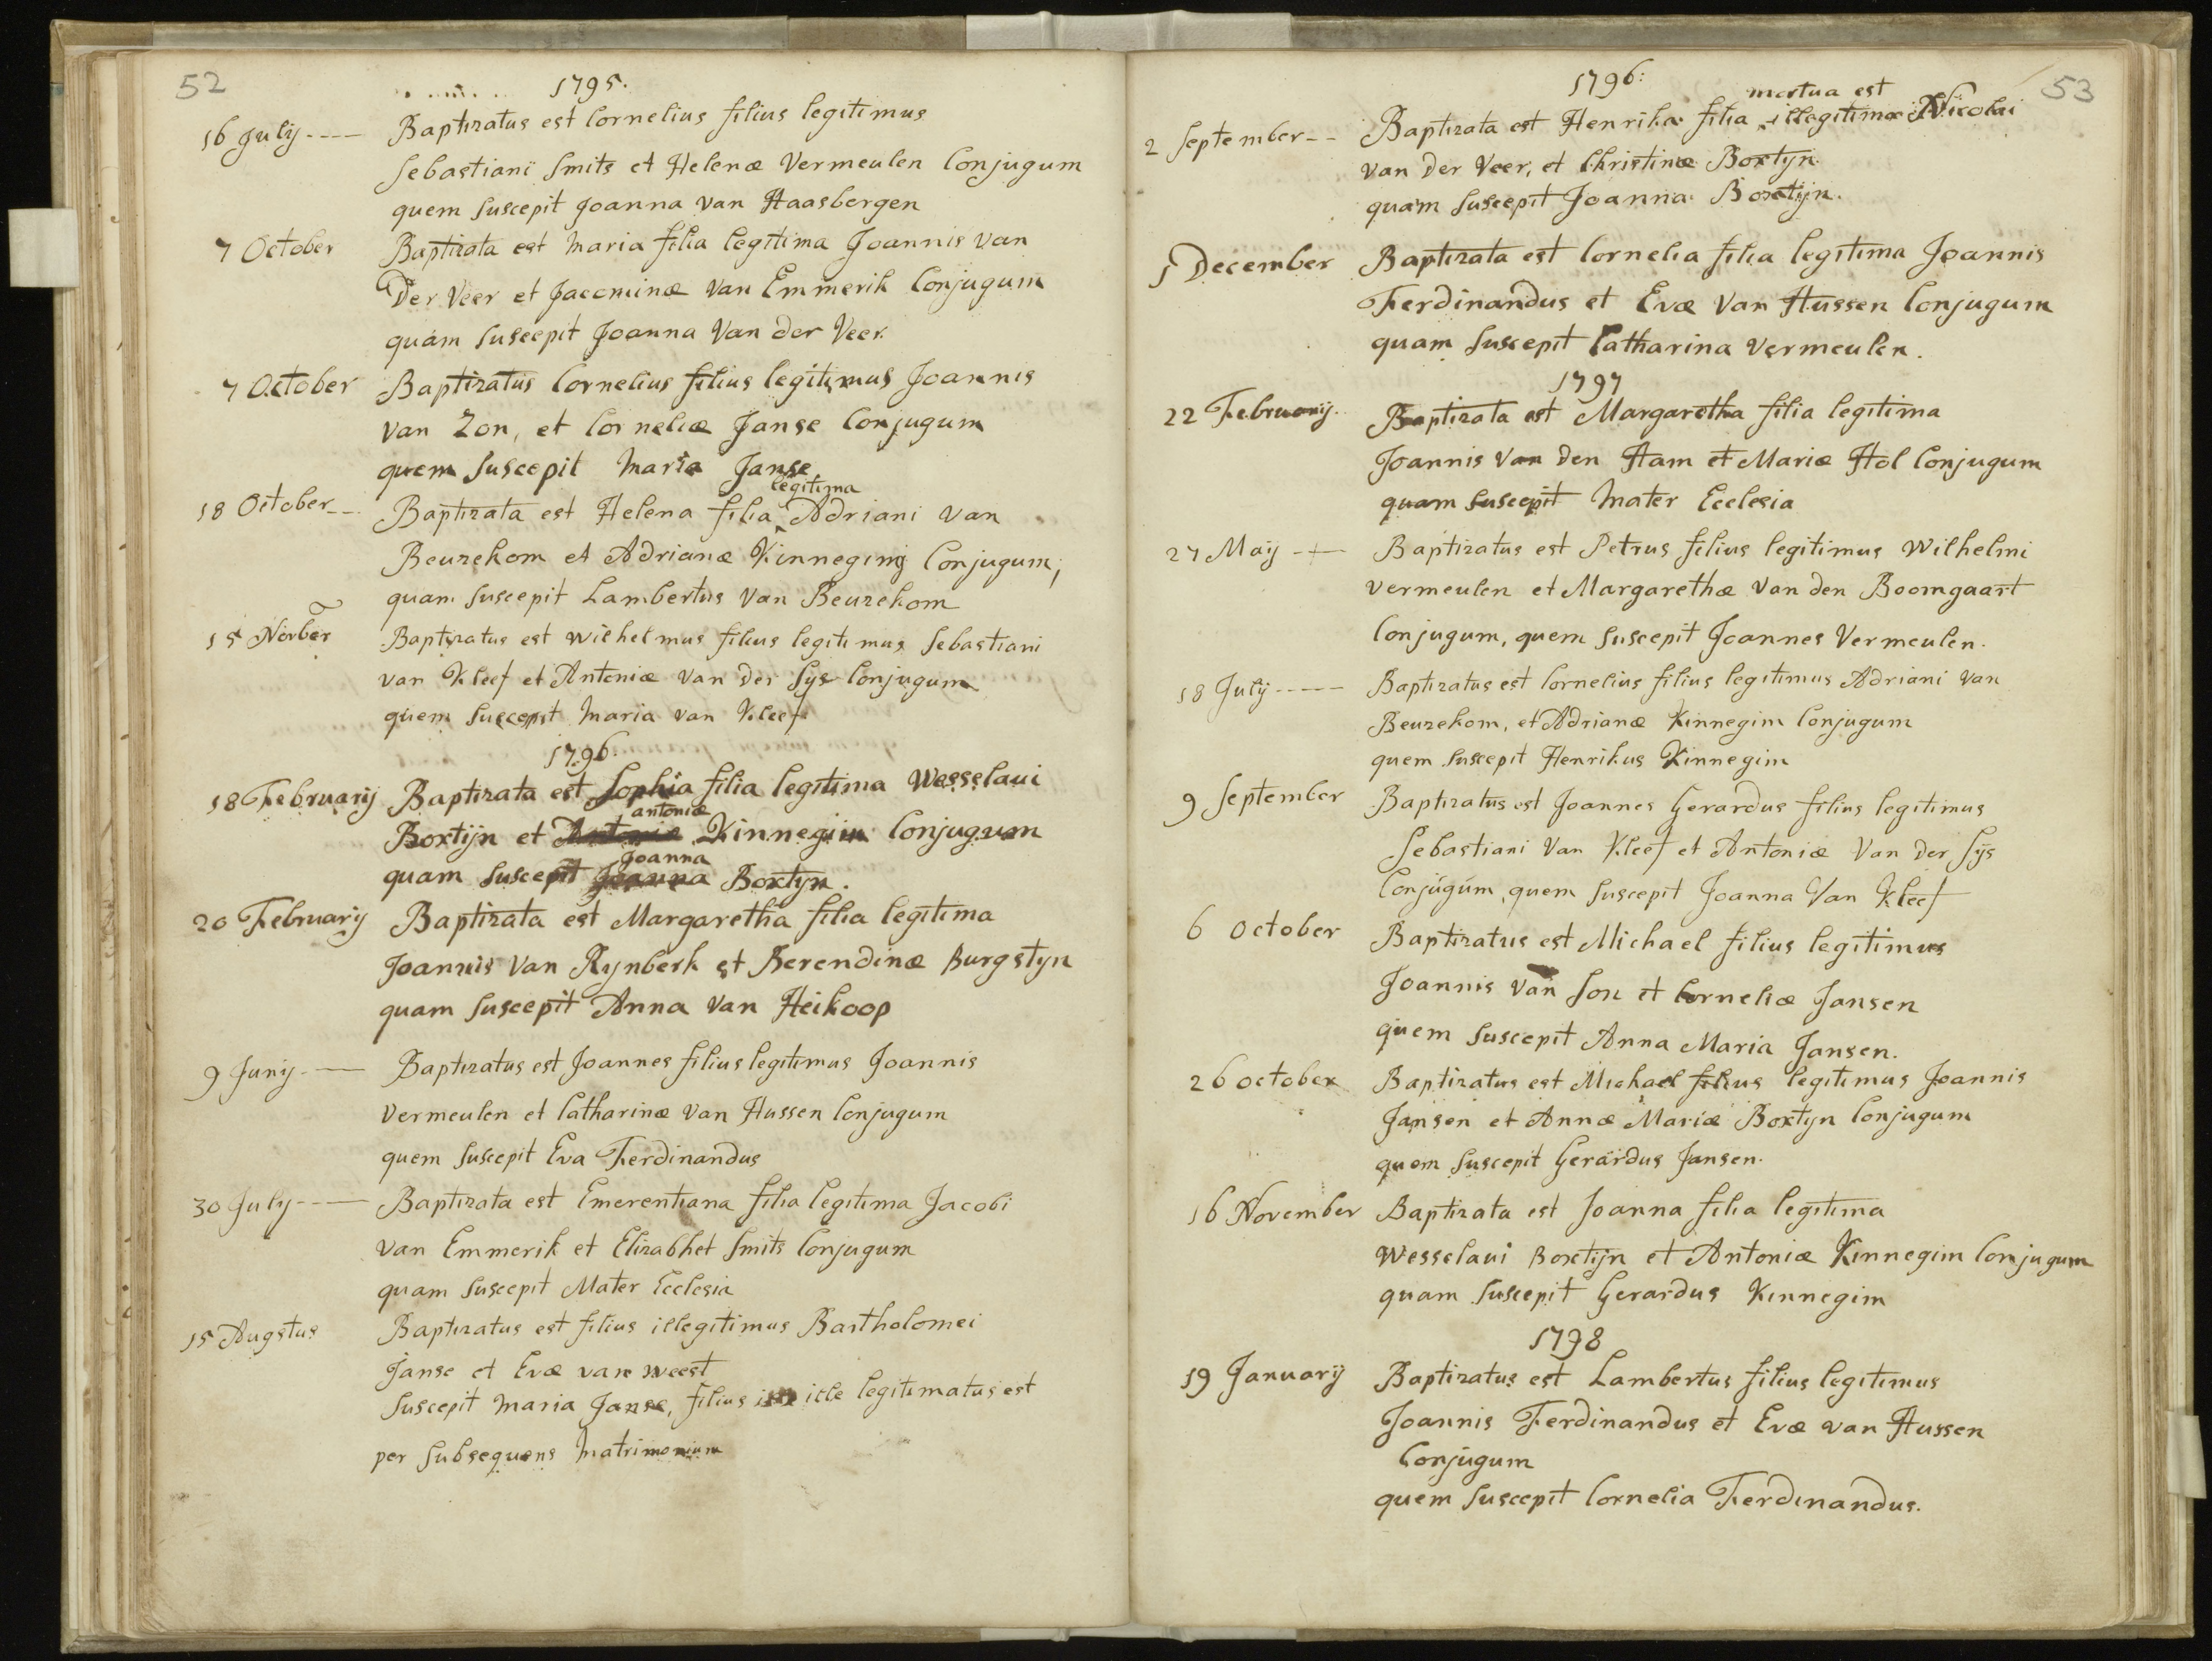 52
1795.
16 July ---- Baptizatus est Cornelius filius legitimus
Sebastiani Smits et Helenæ Vermeulen Conjugum
quem Suscepit Joanna van Haasbergen
7 October Baptizata est Maria filia legitima Joannis van
Der Veer et Jacominæ van Emmerik Conjugum
quam Suscepit Joanna Van der Veer.
7 October Baptizatus Cornelius filius legitimus Joannis
van Zon, et Corneliæ Janse Conjugum
quem Suscepit Maria Janse
legitima
18 October -- Baptizata est Helena filia ‸ Adriani van
Beuzekom et Adrianæ Kinneging Conjugum,
quam Suscepit Lambertus Van Beuzekom
15 Novber Baptizatus est Wilhelmus filius legitimus Sebastiani
van Kleef et Antoniæ van der Sys Conjugum
quem Suscepit Maria van Kleef
1796.
18 February Baptizata est Sophia filia legitima Wesselaui
antoniæ
Boxtijn et Antoniæ Kinnegim Conjugum
Joanna
quam Suscepit Joanna Boxtyn.
20 February Baptizata est Margaretha filia legitima
Joannis Van Rynberk et Berendinæ Burgstyn
quam Suscepit Anna van Heikoop
9 Juny --- Baptizatus est Joannes filius legitimus Joannis
Vermeulen et Catharinæ van Hussen Conjugum
quem Suscepit Eva Ferdinandus
30 July ---- Baptizata est Emerentiana filia legitima Jacobi
van Emmerik et Elizabhet Smits Conjugum
quam Suscepit Mater Ecclesia
15 Augstus Baptizatus est filius illegitimus Bartholomei
Janse et Evæ van Weest
Suscepit Maria Janse, filius ille legitimatus est
per Subsequens Matrimonium
53
1796:
mortua est
2 September -- Baptizata est Henrika filia illegitimæ Nicolai
van Der Veer, et Christinæ Boxtyn.
quam Suscepit Joanna Boxtijn.
1 December Baptizata est Cornelia filia legitima Joannis
Ferdinandus et Evæ Van Hussen Conjugum
quam Suscepit Catharina Vermeulen.
1797
22 February. Baptizata est Margaretha filia legitima
Joannis Van den Ham et Mariæ Hol Conjugum
quam Suscepit Mater Ecclesia
27 Maij --- Baptizatus est Petrus filius legitimus Wilhelmi
Vermeulen et Margarethæ Van den Boomgaart
Conjugum, quem Suscepit Joannes Vermeulen.
18 July ---- Baptizatus est Cornelius filius legitimus Adriani Van
Beuzekom, et Adrianæ Kinnegim Conjugum
quem Suscepit Henrikus Kinnegim
9 September Baptizatus est Joannes Gerardus filius legitimus
Sebastiani Van Kleef et Antoniæ Van der Sys
Conjugum, quem Suscepit Joanna Van Kleef
6 October Baptizatus est Michael filius legitimus
Joannis van Son et Corneliæ Jansen
quem Suscepit Anna Maria Jansen.
26 October Baptizatus est Michael filius legitimus Joannis
Jansen et Annæ Mariæ Boxtyn Conjugum
quem Suscepit Gerardus Jansen.
16 November Baptizata est Joanna filia legitima
Wesselaui Boxtijn et Antoniæ Kinnegim Conjugum
quam Suscepit Gerardus Kinnegim
1798
19 January Baptizatus est Lambertus filius legitimus
Joannis Ferdinandus et Evæ van Hussen
Conjugum
quem Suscepit Cornelia Ferdinandus.